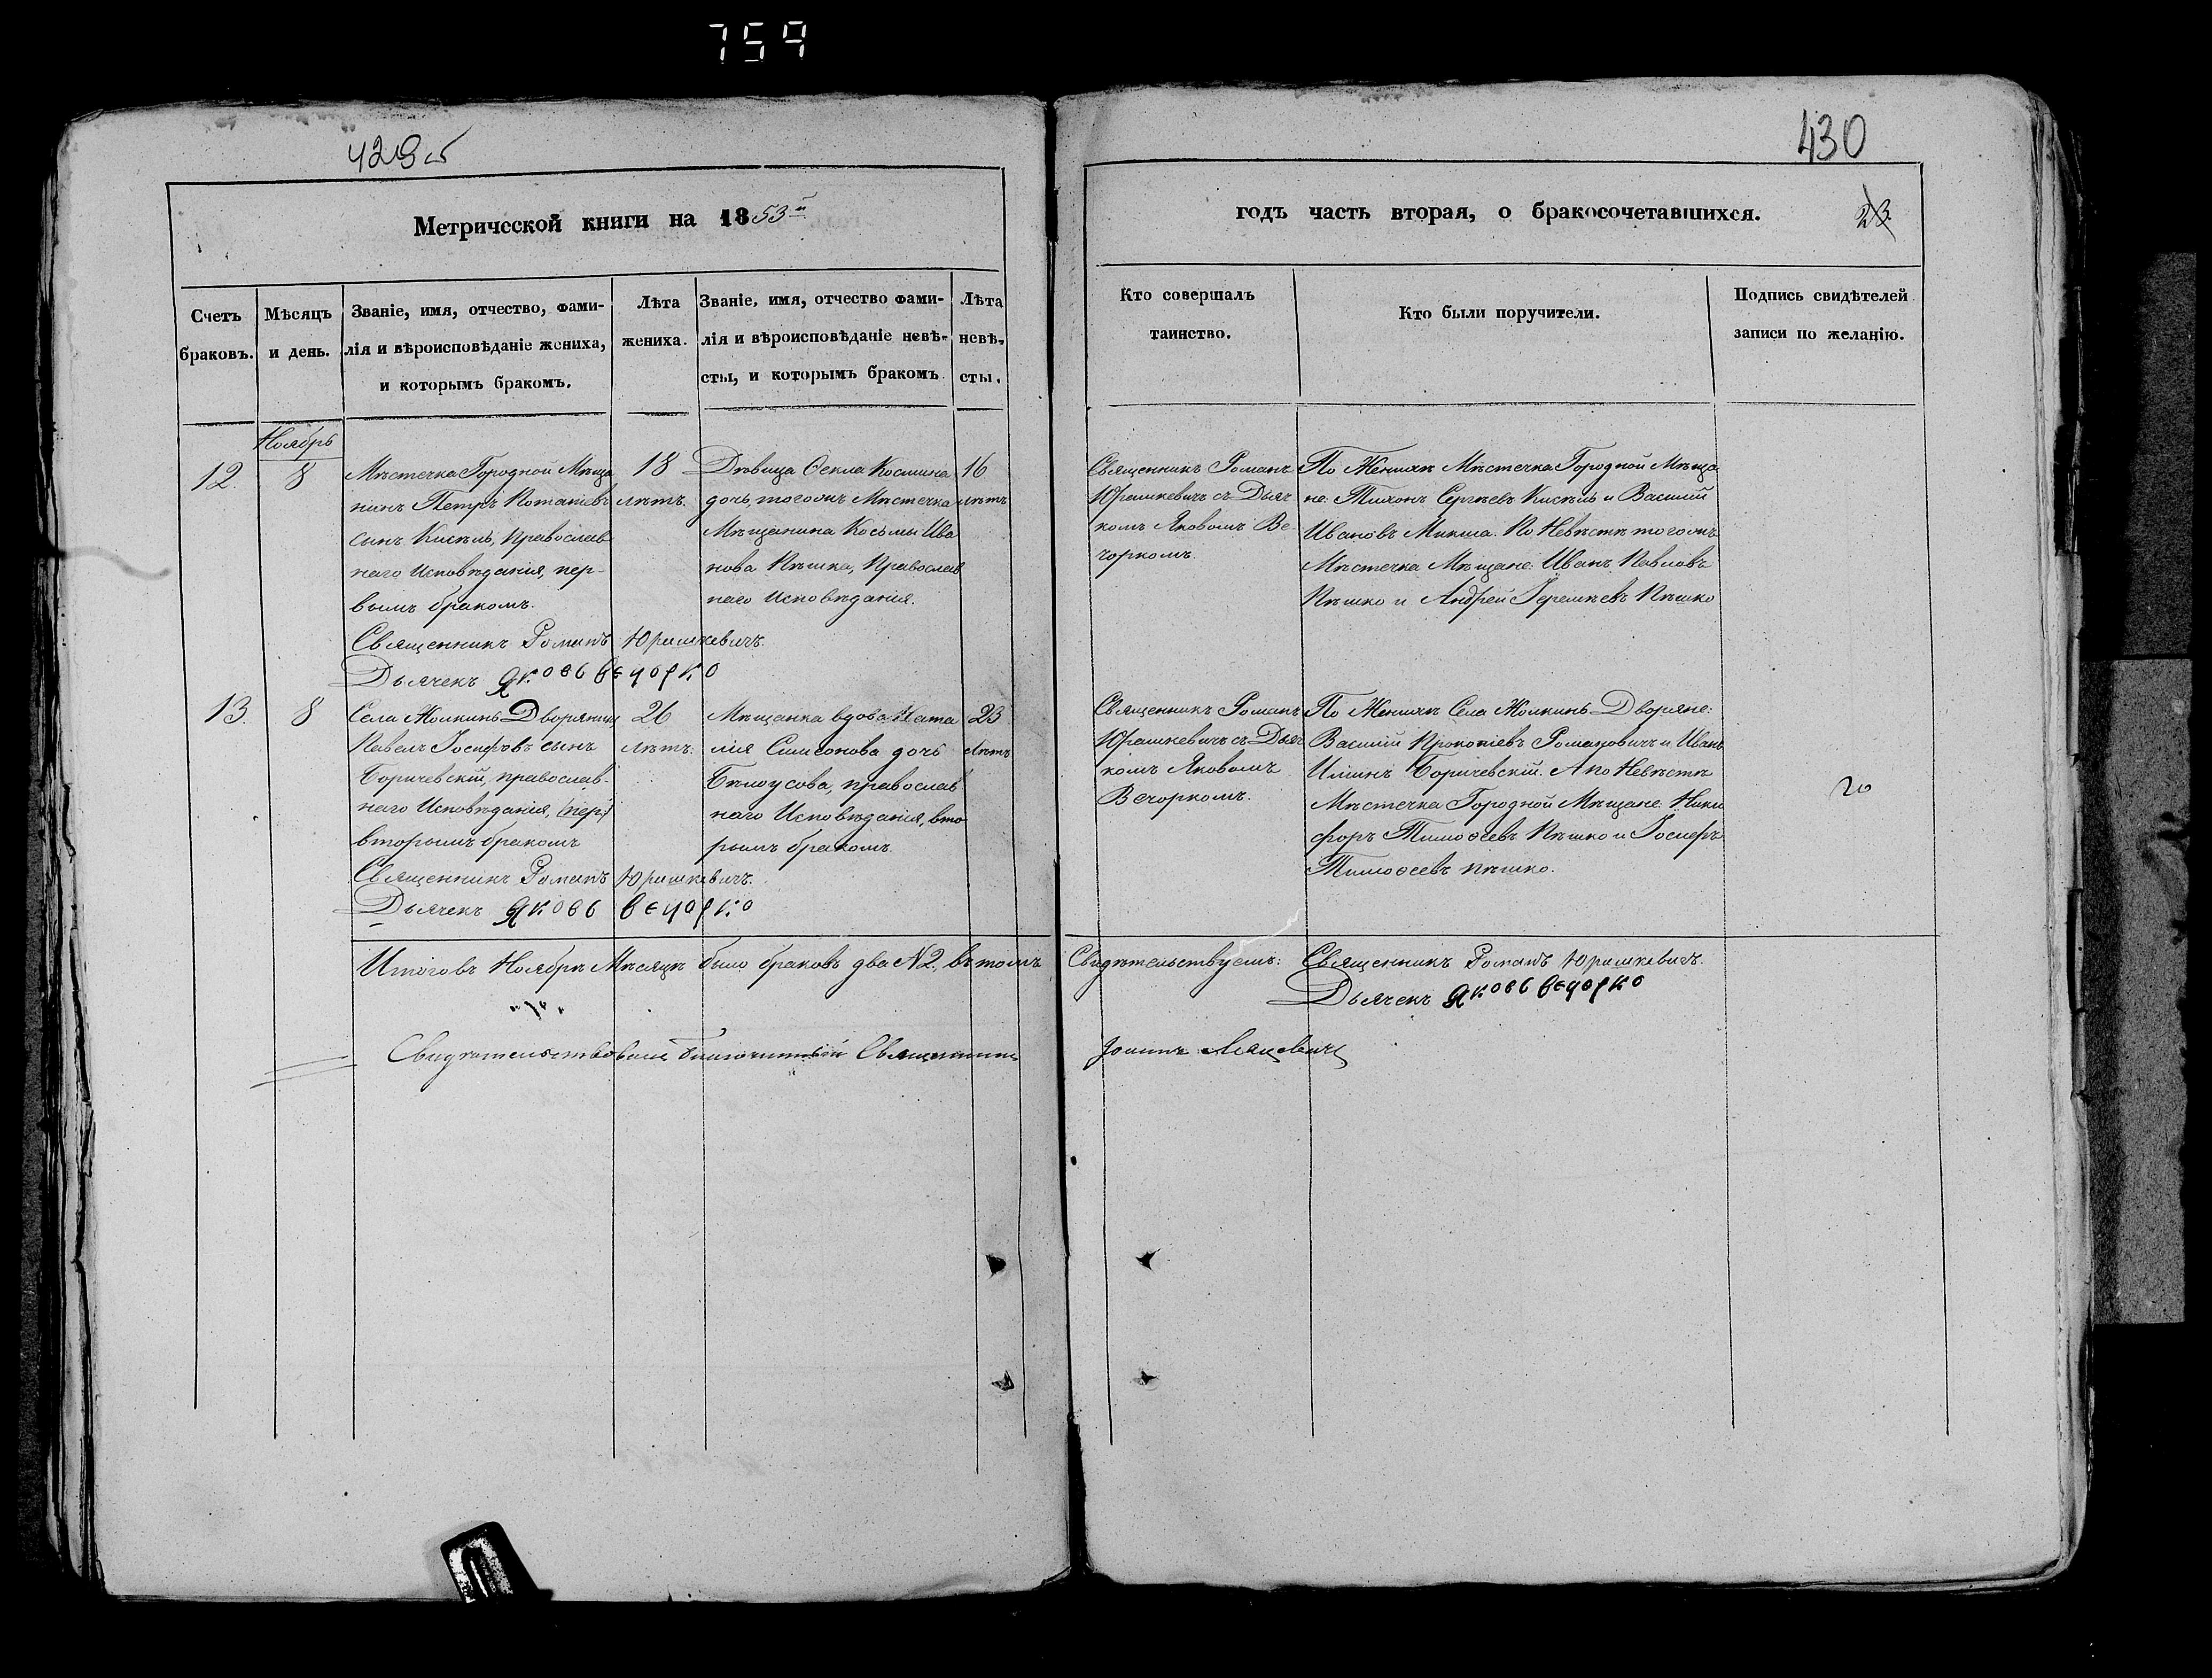 759
429об
430
Метрической книги на 1853й
годъ часть вторая, о бракосочетавшихся.
23
Счетъ
браковъ.
Мѣсяцъ
и день.
Званіе, имя, отчество, фами-
лія и вѣроисповѣданіе жениха,
и которымъ бракомъ.
Лѣта
жениха.
Званіе, имя, отчество фами-
лія и вѣроисповѣданіе невѣ-
сты, и которымъ бракомъ
Лѣта
невѣ-
сты.
Кто совершалъ
таинство.
Кто были поручители.
Подпись свидѣтелей
записи по желанію.
Ноябрь
12.
8
Мѣстечка Городной Мѣща
нинъ Петръ Потапіевъ
сынъ Кисѣль, Православ
наго Исповѣданія, пер-
вымъ бракомъ.
18
лѣтъ.
Дѣвица Ѳекла Космина
дочь, тогожъ Мѣстечка
Мѣщанина Косьмы Ива
нова Пѣшка, Православ
наго Исповѣданія.
16
лѣтъ
Священникъ Романъ
Юрашкевичъ съ Дьяч
комъ Яковомъ Ве-
чоркомъ.
По Женихѣ Мѣстечка Городной Мѣща
не: Тихонъ Сергѣевъ Кисѣль и Василій
Ивановъ Микша. По Невѣстѣ тогожъ
Мѣстечка Мѣщане: Иванъ Павловъ
Пѣшко и Андрей Іеремѣевъ Пѣшко
Священникъ Романъ Юрашкевичъ.
Дьячекъ Яковъ Вечорко
13.
8
Села Жолкинь Дворянинъ
Павелъ Іосифовъ сынъ
Боричевскій, православ-
наго Исповѣданія, (пер)
вторымъ бракомъ
26
лѣтъ.
Мѣщанка вдова Ната
лія Симеонова дочь
Бѣлоусова, православ
наго Исповѣданія, вто
рымъ бракомъ.
23
лѣтъ
Священникъ Романъ
Юрашкевичъ съ Дьяч
комъ Яковомъ
Вечоркомъ.
По Женихѣ Села Жолкинь Дворяне:
Василій Прокопіевъ Романовичъ и Иванъ
Илинъ Боричевскій. А по Невѣстѣ
Мѣстечка Городной Мѣщане: Ники
форъ Тимоѳеевъ Пѣшко и Іосифъ
Тимоѳеевъ Пѣшко.
20
Священникъ Романъ Юрашкевичъ.
Дьячекъ Яковъ Вечорко
Итогов Ноябрѣ Мѣсяцѣ было браковъ два №2, въ томъ
Свидѣтельствуемъ: Священникъ Романъ Юрашкевичъ.
Дьячекъ Яковъ Вечорко
Свидѣтельствовалъ Благочинный Священникъ
Іоаннъ